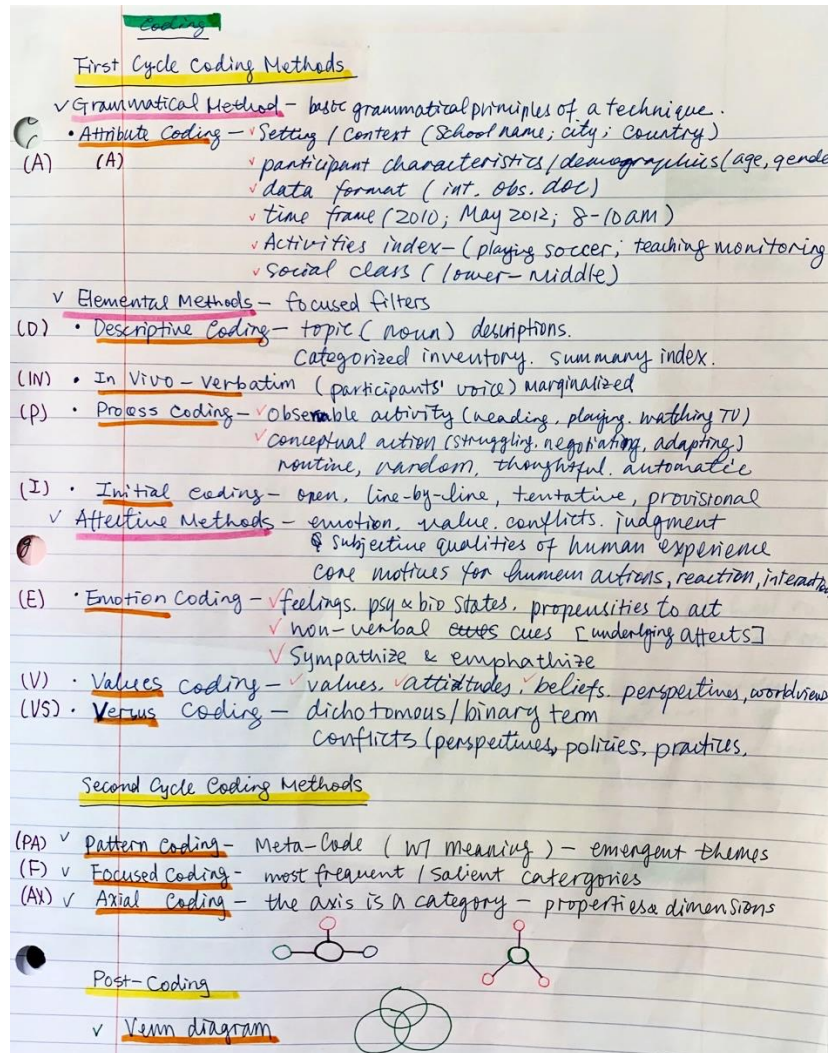 Coding
First Cycle Coding Methods
✓ Grammatical Method – basic grammatical principles of a technique.
• Attribute Coding – ✓ Setting / Context (School name; city; country)
(A) (A) ✓ participant characteristics / demographics (age, gende
✓ data format (int. obs. doc)
✓ time frame (2010; May 2012; 8-10am)
✓ Activities index – (playing soccer; teaching monitoring
✓ Social class (lower-middle)
✓ Elemental Methods – focused filters
(D) • Descriptive Coding – topic (noun) descriptions.
Categorized inventory. summary index.
(IN) • In Vivo – verbatim (participants' voice) marginalized
(P) • Process Coding – ✓ Observable activity (reading. playing. watching TV)
✓ conceptual action (struggling. negotiating, adapting)
routine, random, thoughtful. automatic
(I) • Initial coding – open, line-by-line, tentative, provisional
✓ Affective Methods – emotion, value. conflicts. judgment
& Subjective qualities of human experience
core motives for human actions, reaction, interaction
(E) • Emotion Coding – ✓ feelings. psy & bio states. propensities to act
✓ non-verbal cues [underlying affects]
✓ Sympathize & emphathize
(V) • Values coding – ✓ values. ✓ attitudes. ✓ beliefs. perspectives, worldviews
(VS) • Versus Coding – dichotomous/binary term
conflicts (perspectives, policies, practices,
Second Cycle Coding Methods
(PA) ✓ Pattern Coding – Meta-Code (w/ meaning) – emergent themes
(F) ✓ Focused Coding – most frequent / salient catergories
(AX) ✓ Axial Coding – the axis is a category – properties & dimensions
Post-Coding
✓ Venn diagram